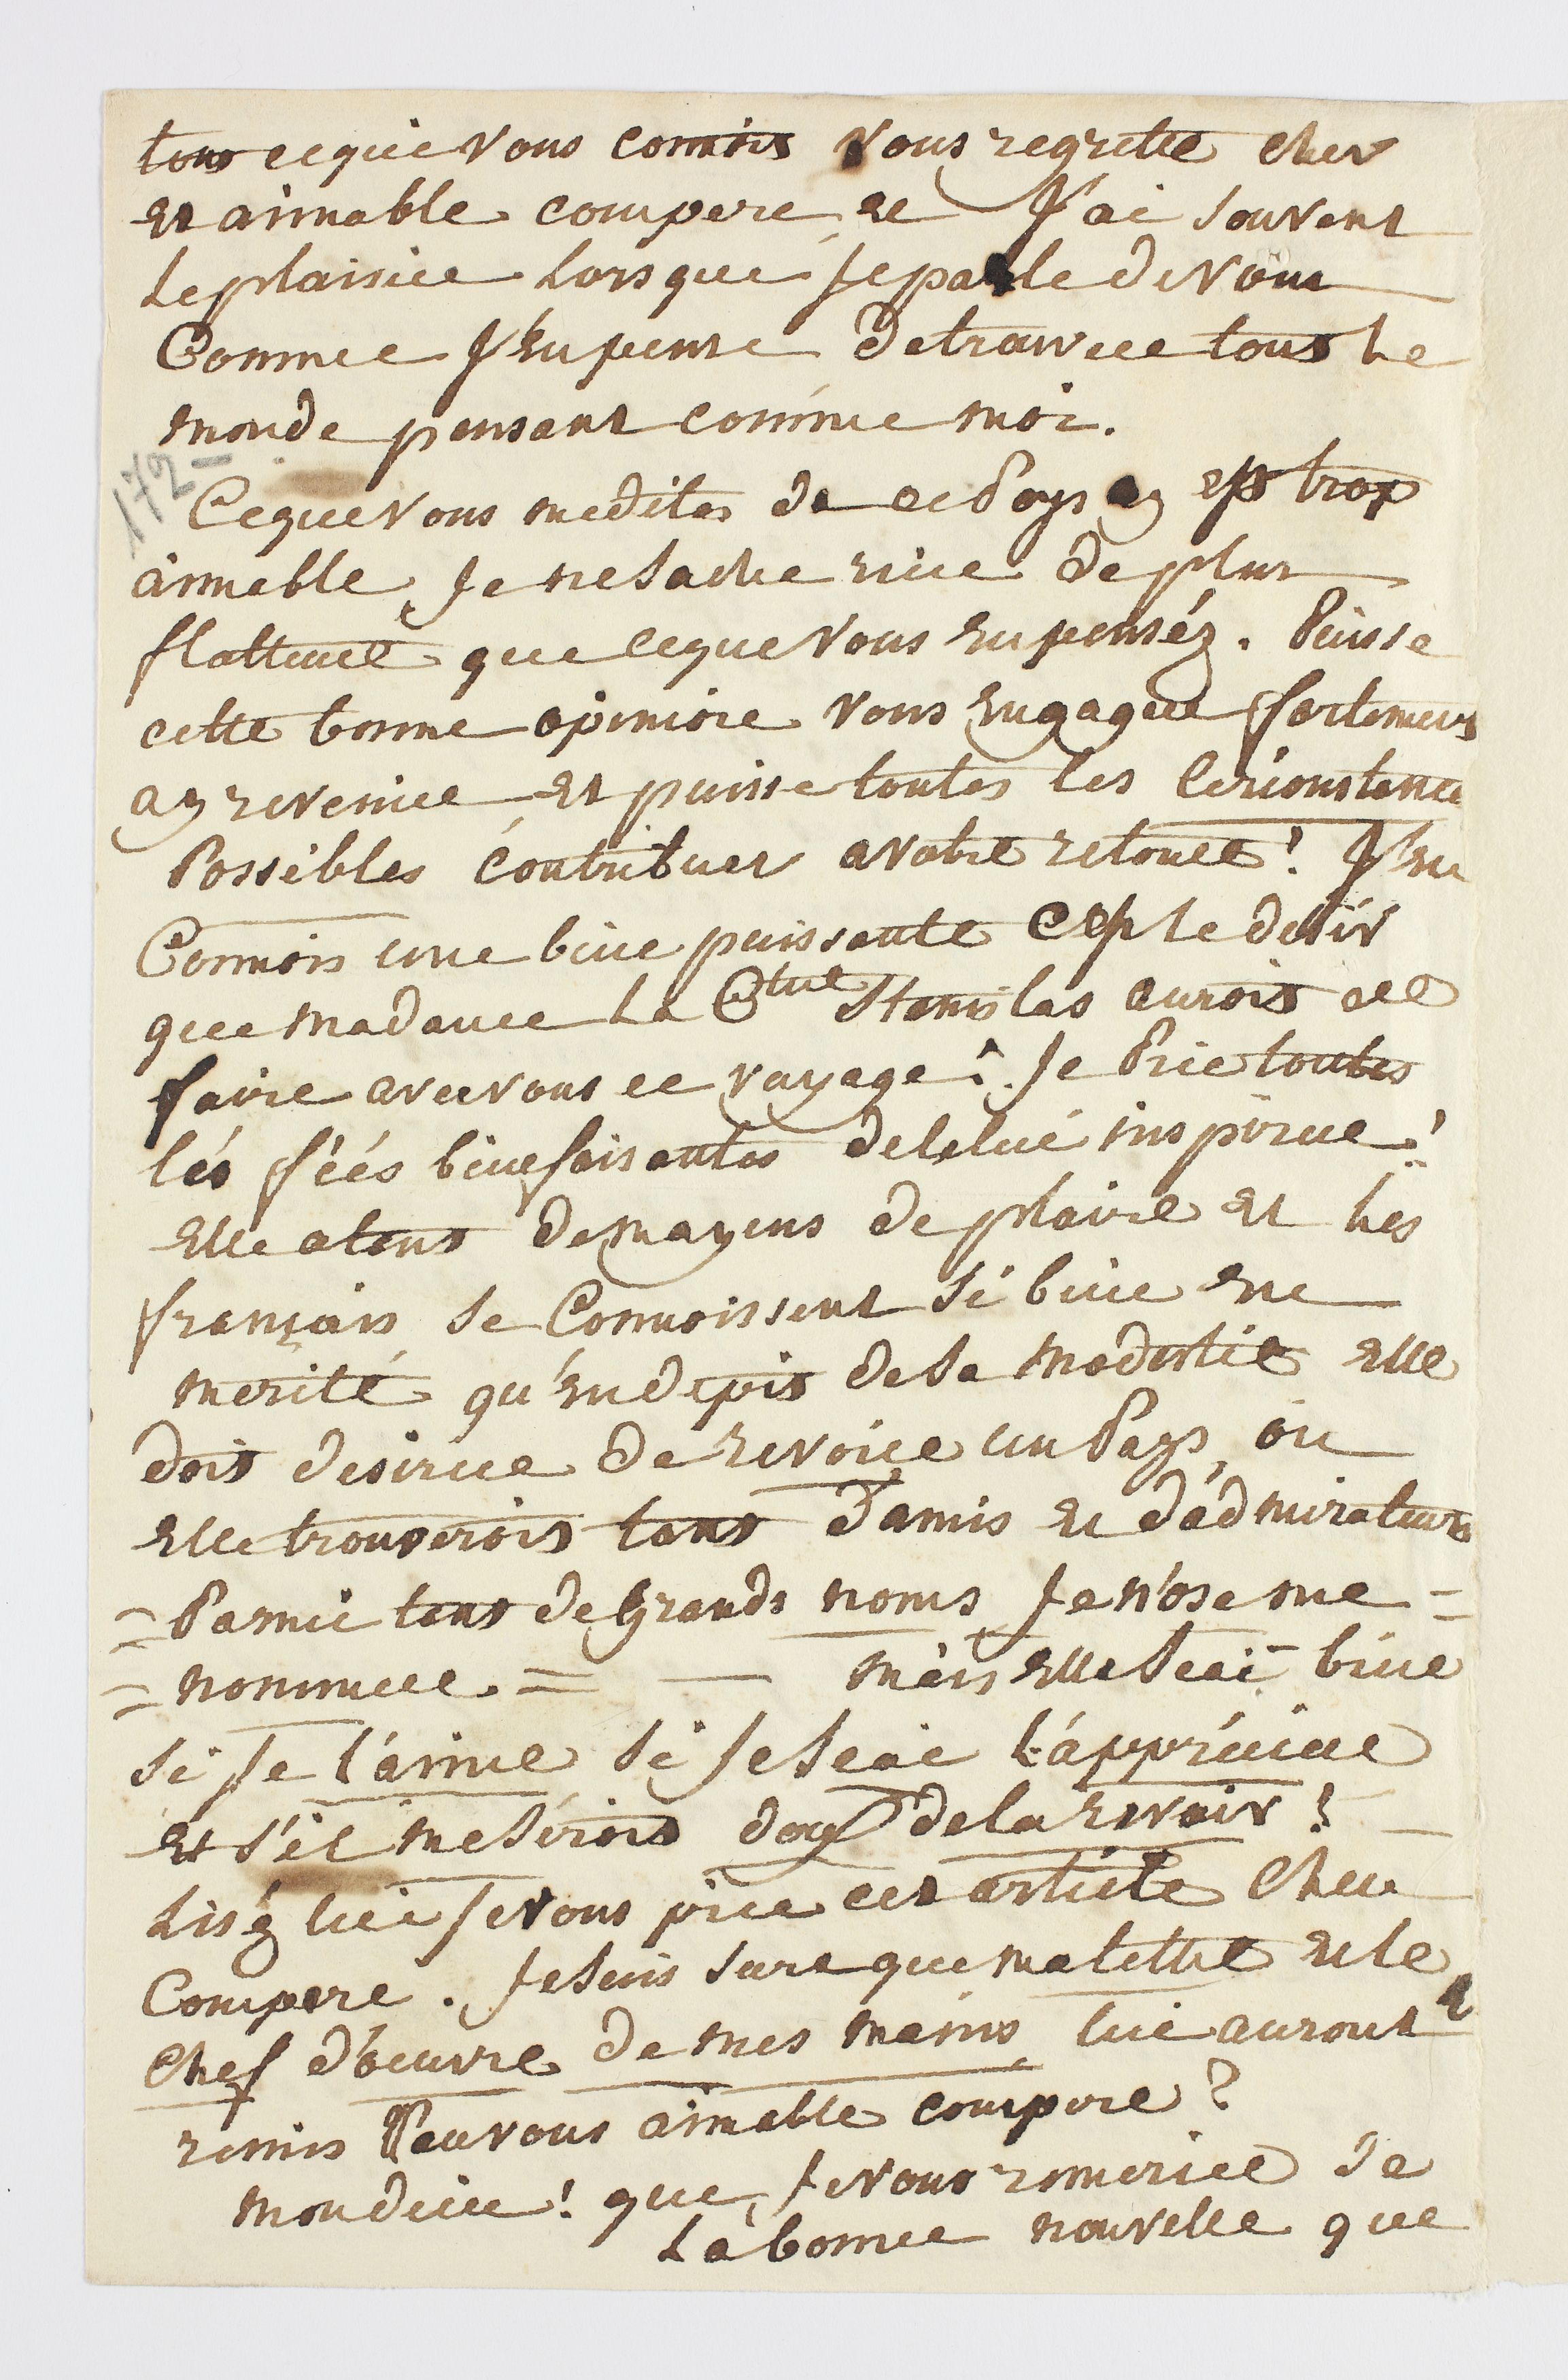 tous ce qui vous connois vous regrette cher
et aimable compere, et J'ai souvent
le plaisir lorsque je parle de vous
Comme J'en pense de trouver tous le
monde pensant comme moi.
172
Ce que vous me dites de ce Pays est trop
aimable, je ne sache rien de plus
flatteur que ce que vous en penséz. Puisse
cette bonne opinion vous engager fortement
a y revenir et puisse toutes les circonstance
Possibles contribuer a votre retour! J'en
Connois une bien puissante c'est le desir
que madame la Ctesse Stanislas aurois de
faire avec vous ce voyage! Je Prie toutes
lés féés bienfaisantes de le lui inspirer!
elle a tant de moyens de plaire et les
français se Connoissent si bien en
merite qu'en depis de sa modestie elle
dois desirer de revoir un Pays, ou
elle trouverois tant d'amis et d'admirateurs
= Parmi tant de Grands noms je n'ose me =
= nommer. = — mais elle scai bien
si je l'aime si je scai l'apprécier
et s'il me sérois doux de la revoir!
Liséz lui je vous prie cet article cher
Compere. je suis sure que ma lettre et le
chef d'œuvre de mes mains lui auront été
remis Par vous aimable compere?
mon dieu! que je vous remercie de
la bonne nouvelle que